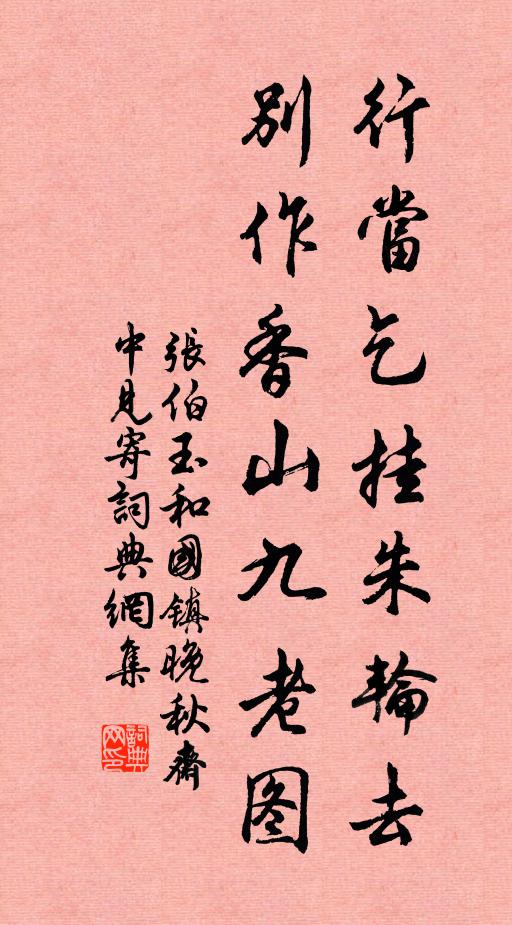 行當乞挂朱輪去
別作香山九老图
張伯玉和國鎮晚秋齋
中見寄詞典網集
詞典
网印